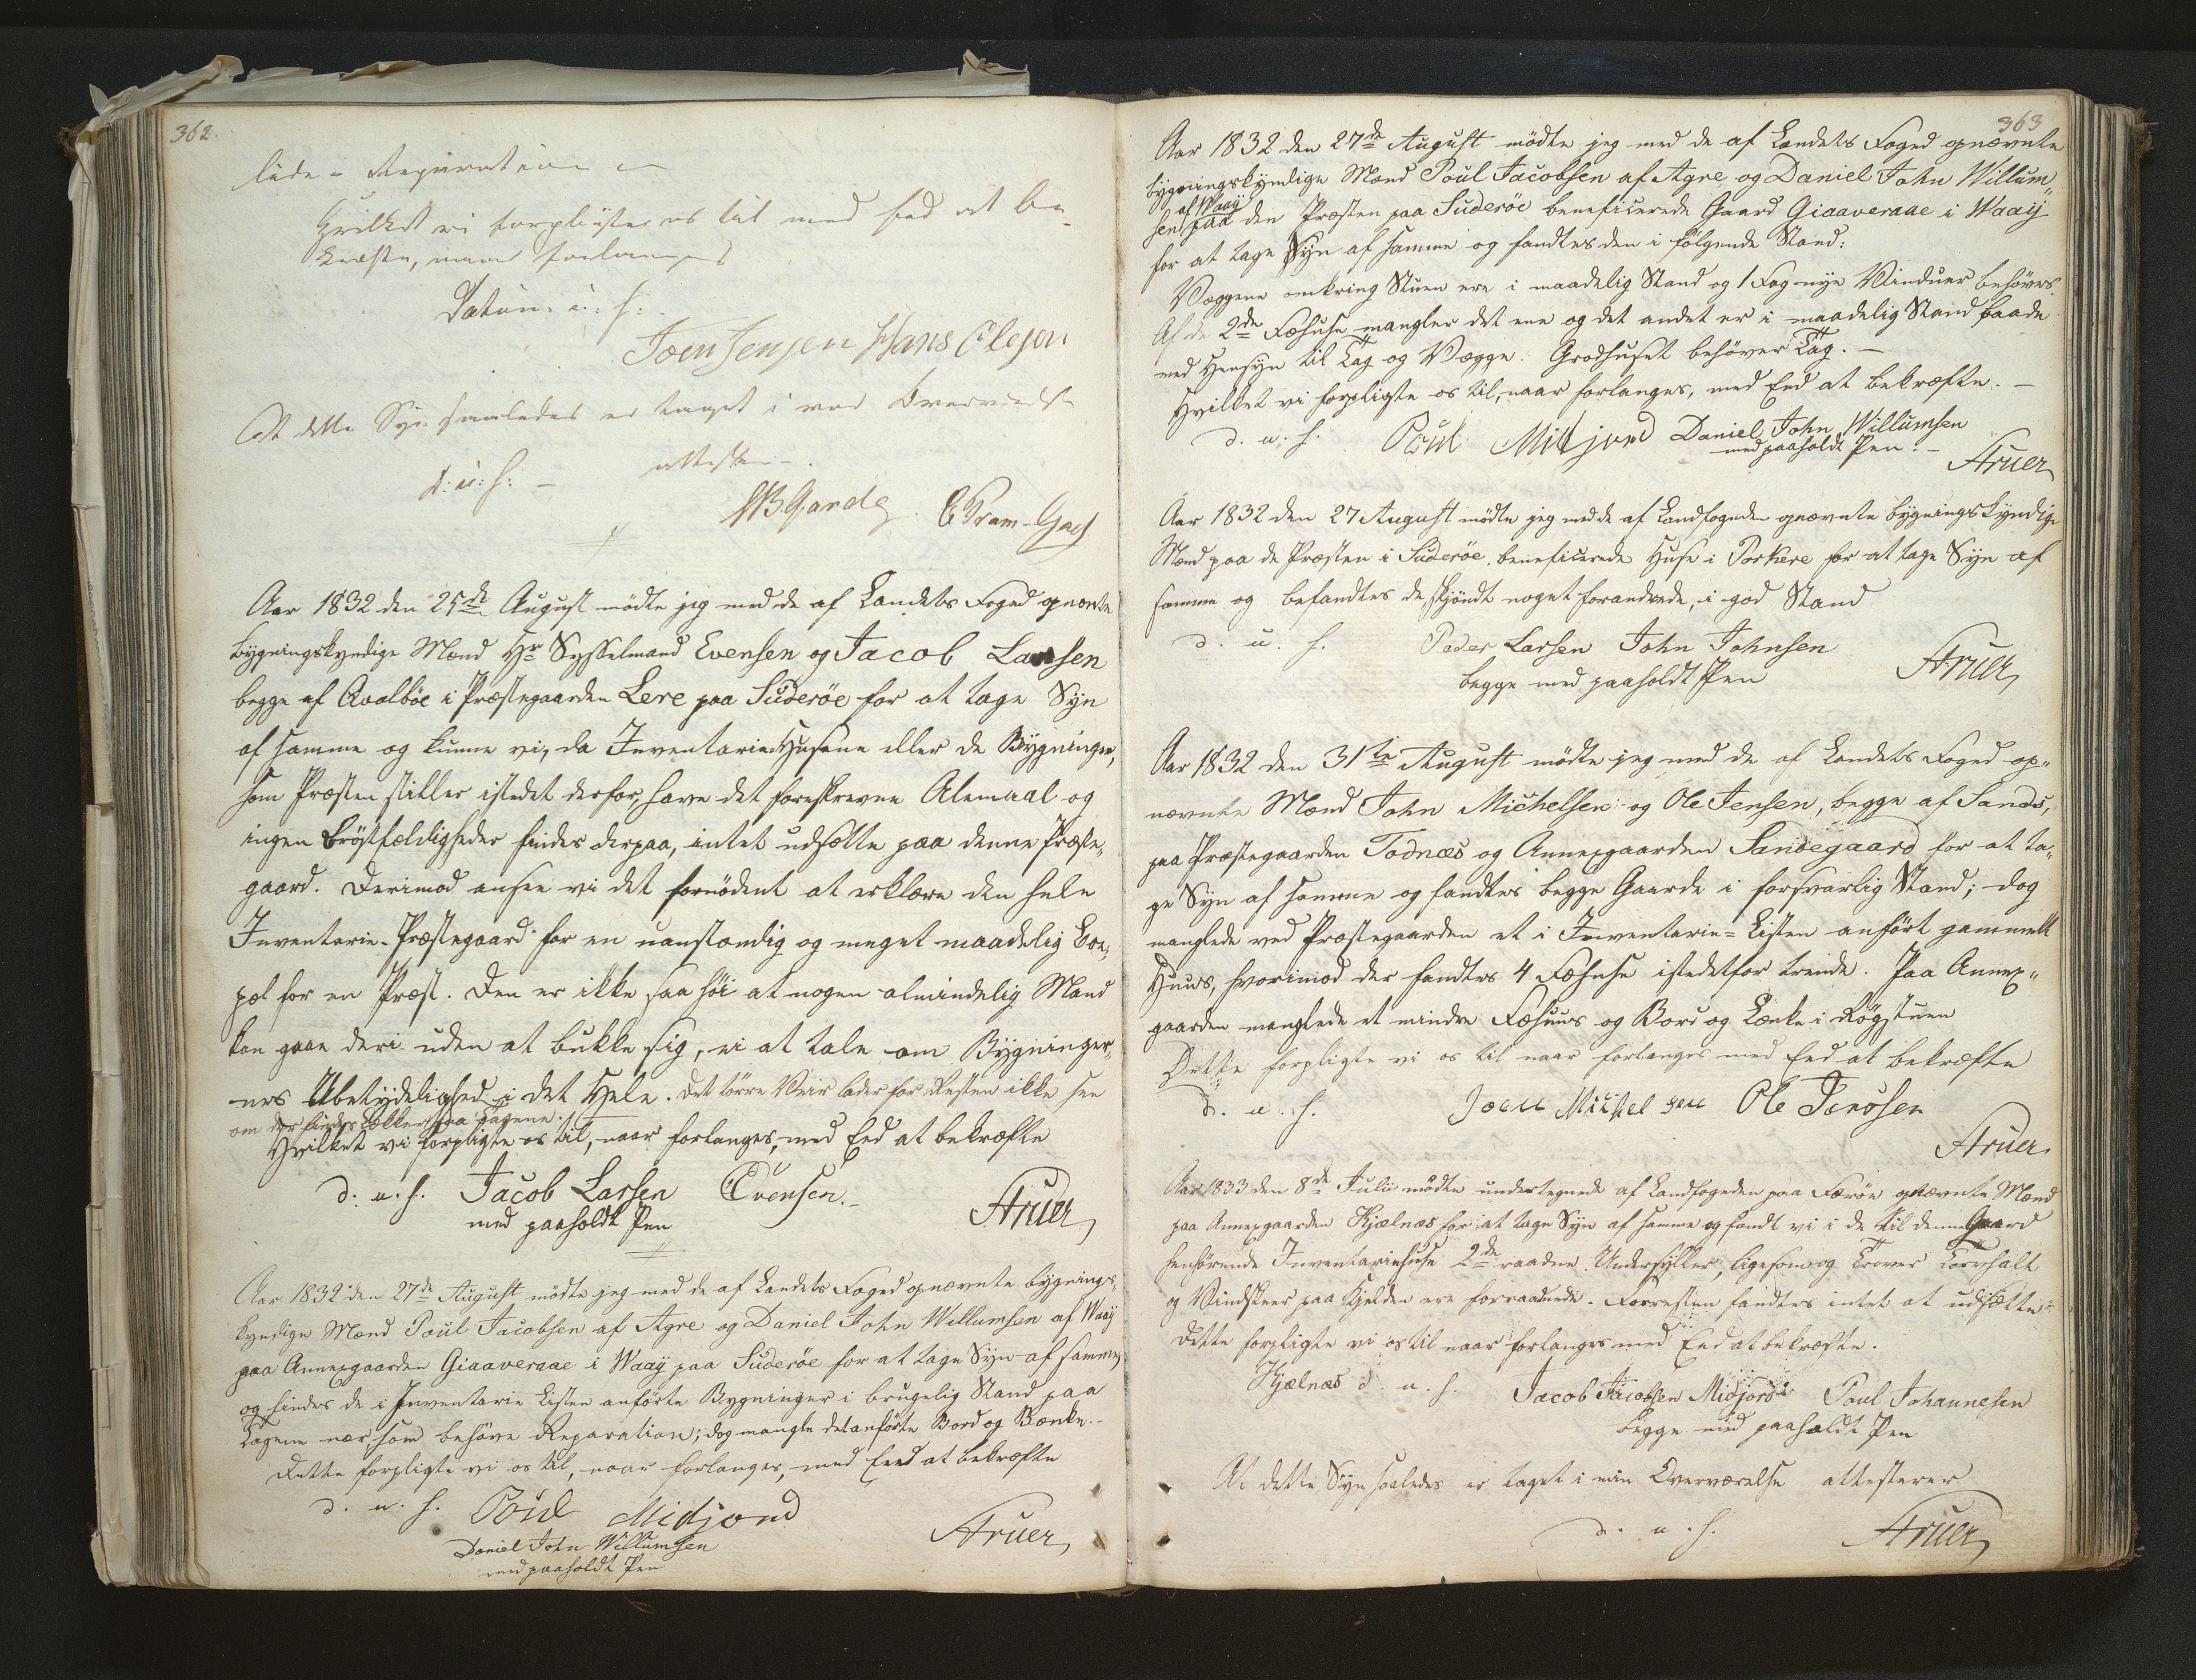 362
lide - Reparation
Hvilket vi forpligter os til med Eed at be-
kræfte, naar forlanges
Datum u: s:
Joen Jensen Hans Olesen
At dette Syn saaledes er taget i vor Overværelse
d: u: s: - attestere -
Aar 1832 den 25de August mödte jeg med de af Landets Foged opnævnte
bygningskyndige Mænd Hr Sysselmand Evensen og Jacob Larsen
begge af Qvalböe i Præstegaarden Lere paa Süderöe for at tage Syn
af samme og kunne vi, da Inventarie-Husene eller de Bygninger,
som Præsten stiller istedet derfor, have det foreskrevne Alemaal og
ingen Bröstfældigheder findes derpaa, intet udsætte paa denne Præste-
gaard. Derimod ansee vi det fornödent at erklære den hele
Inventarie-Præstegaard for en uanstændig og meget maadelig Boe-
pæl for en Præst. Den er ikke saa höi at nogen almindelig Mand
kan gaae deri uden at bukke sig, ei at tale om Bygninger-
nes Ubetydelighed i det Hele. Det törre Veir lader for Resten ikke see
om der findes Lækker paa Tagene.
Hvilket vi forpligte os til, naar forlanges, med Eed at bekræfte
d. u. s. Jacob Larsen Evensen.
med paaholdt Pen Strüer
Aar 1832 den 27de August mödte jeg med de af Landets Foged opnævnte bygnings-
kyndige Mænd Poul Jacobsen af Agre og Daniel John Willumsen af Waaÿ
paa Annexgaarden Giaaveraae i Waaÿ paa Süderöe for at tage Syn af samme,
og findes de i Inventarie Listen anförte Bygninger i brugelig Stand paa
Tagene nær som behöve Reparation; dog mangle det anförte Bord og Bænke.-
Dette forpligte vi os til, naar forlanges, med Eed at bekræfte
d. u. s. Poül Midjord
Daniel John Willumsen Strüer
med paaholdt Pen
363
Aar 1832 den 27de August mödte jeg med de af Landets Foged opnævnte
bygningskyndige Mænd Poul Jacobsen af Agre og Daniel John Willum„
af Waaÿ
sen paa den Præsten paa Süderöe beneficerede Gaard Giaaveraae i Waaÿ
for at tage Syn af samme og fandtes den i fölgende Stand:
Væggene omkring Stuen ere i maadelig Stand og 1 Fag nye Vinduer behöves.
Af de 2de Fæhuse mangler det ene og det andet er i maadelig Stand baade
med Hensyn til Tag og Vægge. Grodhuset behöver Tag. -
Hvilket vi forpligte os til, naar forlanges, med Eed at bekræfte. -
d. u. s. Poul Midjord Daniel John Willumsen
med paaholdt Pen. - Strüer
Aar 1832 den 27 August mödte jeg med de af Landfogeden opnævnte bygningskyndige
Mænd paa de Præsten i Süderöe beneficerede Huse i Porkere for at tage Syn af
samme og befandtes de, skjöndt noget forandrede, i god Stand
d. u. s. Peder Larsen John Johnsen
begge med paaholdt Pen Strüer
Aar 1832 den 31te August mödte jeg med de af Landets Foged op„
nævnte Mænd John Michelsen og Ole Jensen, begge af Sands,
paa Præstegaarden Todnæs og Annexgaarden Sandegaard for at ta„
ge Syn af samme og fandtes begge Gaarde i forsvarlig Stand; dog
manglede ved Præstegaarden et i Inventarie-Listen anfört gammelt
Huus, hvorimod der fandtes 4 Fæhuse istedetfor trende. Paa Annex„
gaarden manglede et mindre Fæhuus og Bord og Bænke i Rögstuen
Dette forpligte vi os til naar forlanges med Eed at bekræfte
d. u. s. Joen Michelsen Ole Jenssen
Strüer.
Aar 1833 den 8de Julii mödte undertegnede af Landfogeden paa Færöe opnævnte Mænd
paa Annexgaarden Kjælnæs for at tage Syn af samme og fandt vi i de til denne Gaard
henhörende Inventariehuse 2de raadne Undersyller, ligesom og
og Vindskeer paa Hjelden ere forraadnede. Forresten fandtes intet at udsætte.
Dette forpligte vi os til naar forlanges med Eed at bekræfte.
Kjælnæs d. u. s. Jacob Jacobsen Midjord Poul Johannesen
begge med paaholdt Pen
At dette Syn saaledes er taget i min Overværelse attesterer
d. u. s. Strüer